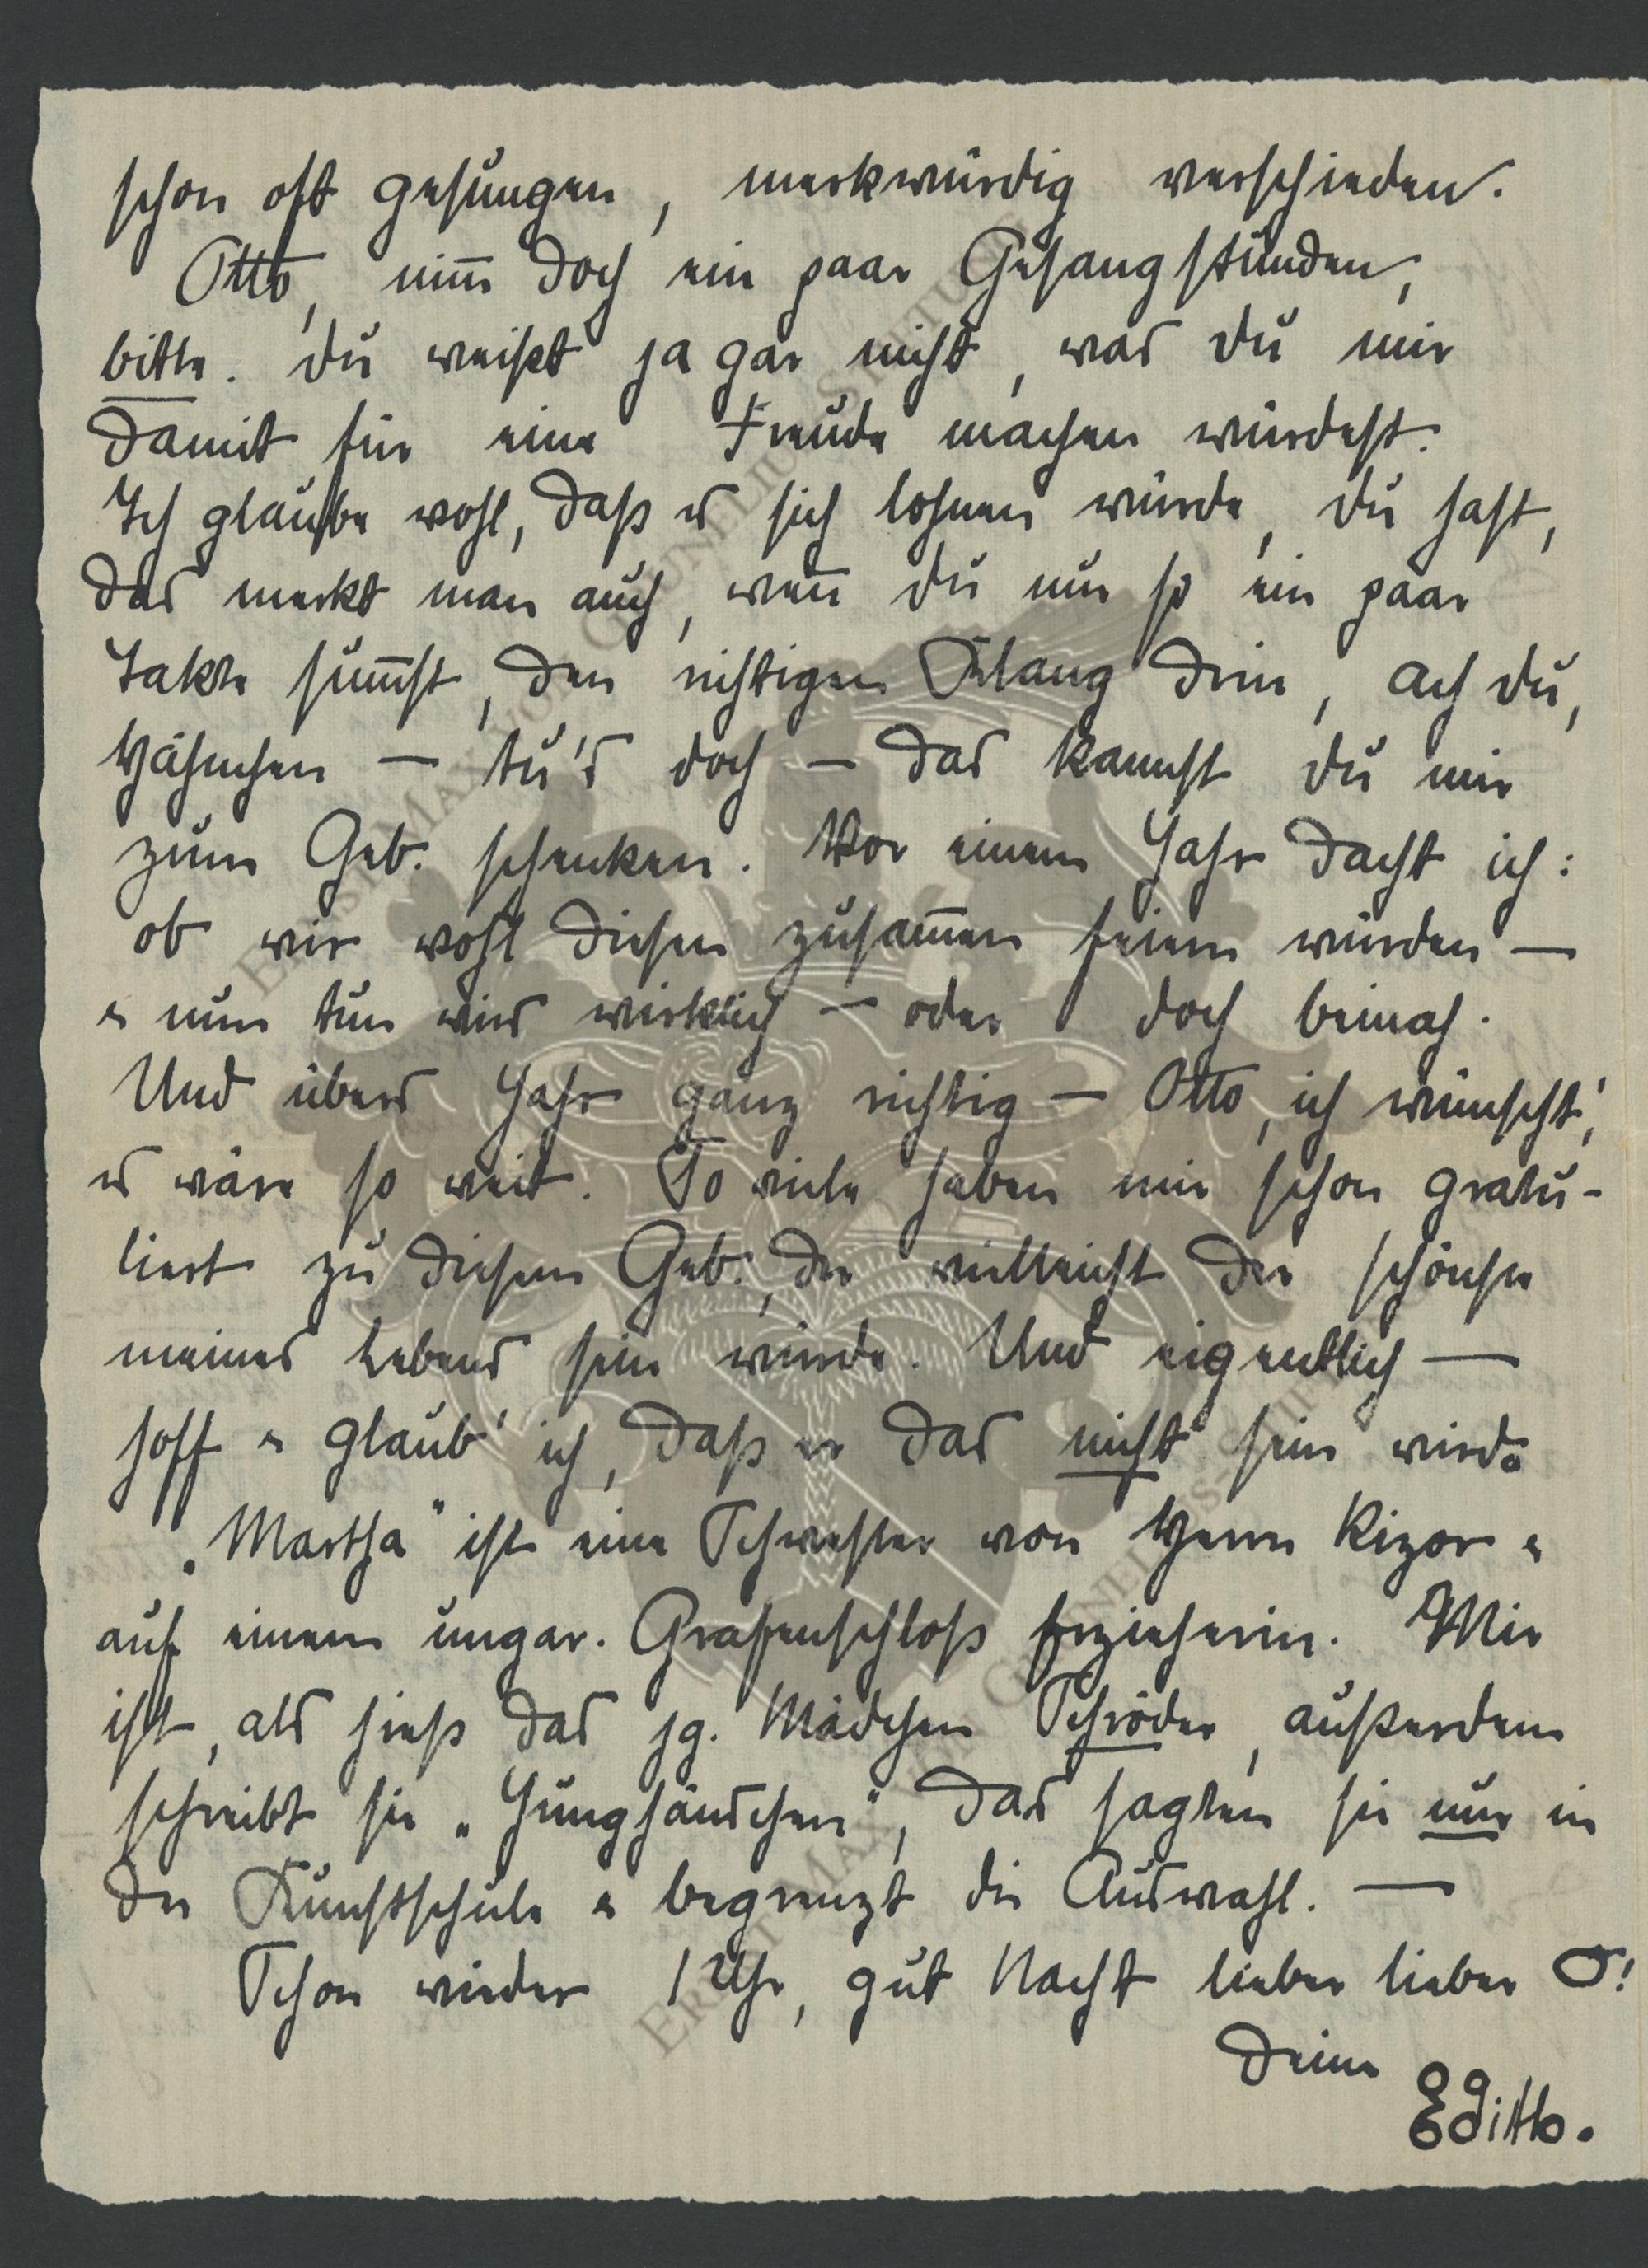 schon oft gesungen, merkwürdig verschieden.
Otto, nim̅ doch ein paar Gesangstunden,
bitte. Du weißt ja gar nicht, was Du mir
damit für eine Freude machen würdest.
Ich glaube wohl, daß es sich lohnen würde, Du hast,
das merkt man auch, wen̅ Du nur so ein paar
Takte sum̅st, den richtigen Klang drin, ach Du,
Hähnchen — tu's doch — das kannst Du mir
zum Geb. schenken. Vor einem Jahr dacht ich:
ob wir wohl diesen zusam̅en feiern würden —
u nun tun wirs wirklich — oder doch beinah.
Und übers Jahr ganz richtig — Otto, ich wünscht',
es wäre so weit. So viele haben mir schon gratu-
liert zu diesem Geb., der vielleicht der schönste
meines Lebens sein würde. Und eigentlich —
hoff u glaub' ich, daß er das nicht sein wird.
„Martha" ist eine Schwester von Herrn Kizor u
auf einem ungar. Grafenschloß Erzieherin. Mir
ist, als hieß das jg. Mädchen Schröder, außerdem
schreibt sie „Junghänschen", das sagten sie nur in
der Kunstschule u begrenzt die Auswahl. —
Schon wieder 1 Uhr, gut Nacht lieber lieber O!
Deine
Edith.
ERNST MAX VON GRUNELIUS STIFTUNG
ERNST MAX VON GRUNELIUS STIFTUNG